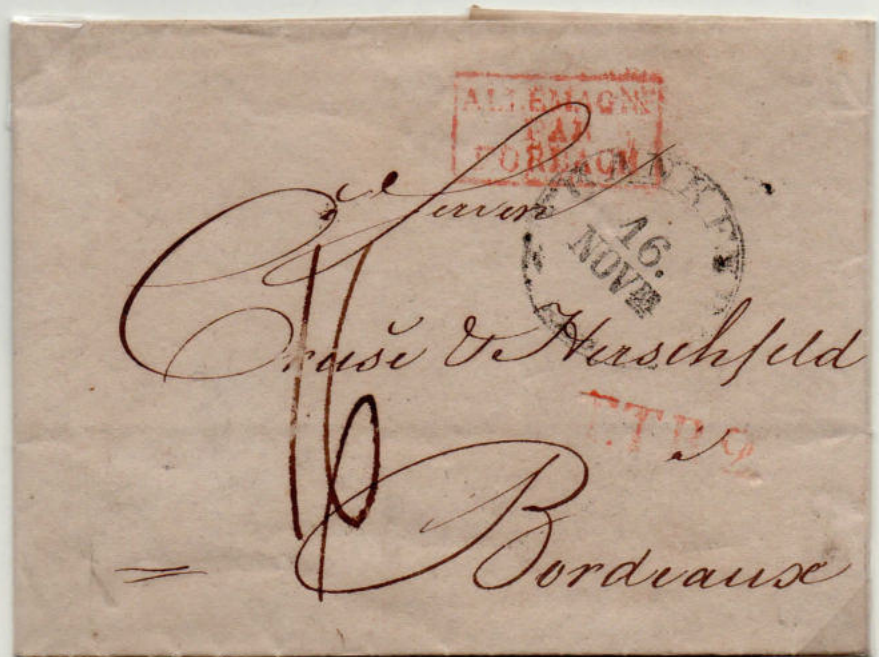 ALLEMAGNE
PAR
FORBACH
Herren
FRANKFURT
16.
NOVR
Cruse & Herschfeld
T.T.R.2
16
Bordeaux